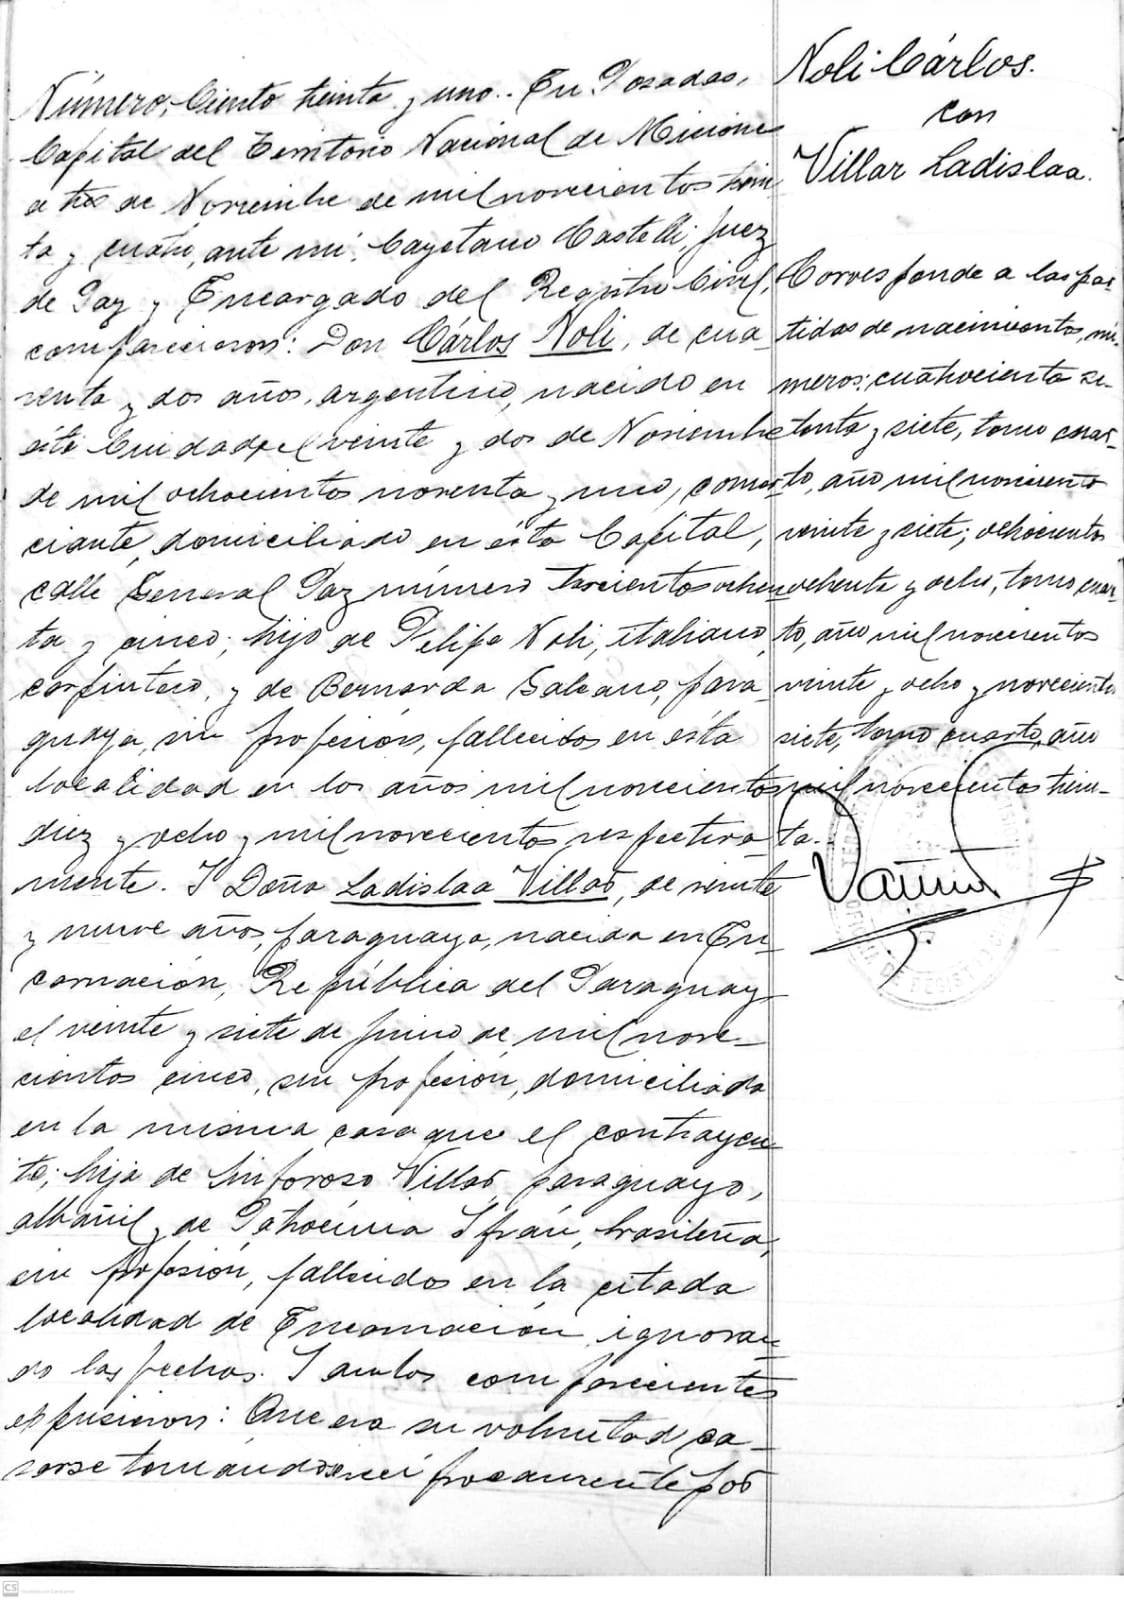 Número, Ciento treinta y uno.. En Posadas,
Capital del Territorio Nacional de Miciones
a tres de Noviembre de mil novecientos trein
ta y cuatro, ante mí, Cayetano Castelli, Juez
de Paz y Encargado del Registro Civil,
comparecieron: Don Cárlos Noli, de cua
renta y dos años, argentino, nacido en
ésta Ciudad, el veinte y dos de Noviembre
de mil ochocientos noventa y uno, comer
ciante, domiciliado en ésta Capital,
calle General Paz número trescientos ochen
ta y cinco, hijo de Felipe Noli, italiano,
carpintero, y de Bernarda Galeano, para
guaya, sin profesión, fallecidos en ésta
localidad en los años mil novecientos
diez y ocho y mil novecientos respectiva
mente. I Doña Ladislaa Villar, de veinte
y nueve años, paraguaya, nacida en En-
carnación, República del Paraguay
el veinte y siete de Junio de mil nove-
cientos cinco, sin profesión, domiciliada
en la misma casa que el contrayen
te; hija de Sinforoso Villar, paraguayo,
albañil y de Patrocinia Ifrán, brasileña,
sin profesión, fallecidos en la citada
localidad de Encarnación, ignoran
do las fechas. I ambos comparecientes
expusieron: Que era su voluntad ca-
sarse tomándose recíprocamente por
Noli Cárlos.
con
Villar Ladislaa.
Corresponde a las par-
tidas de nacimientos, nú-
meros: cuatrocientos se-
tenta y siete, tomo cuar-
to, año mil novecientos
veinte y siete; ochocientos
ochenta y ocho, tomo cuar
to, año mil novecientos
veinte y ocho y novecientos
siete, tomo cuarto, año
mil novecientos trein-
ta..